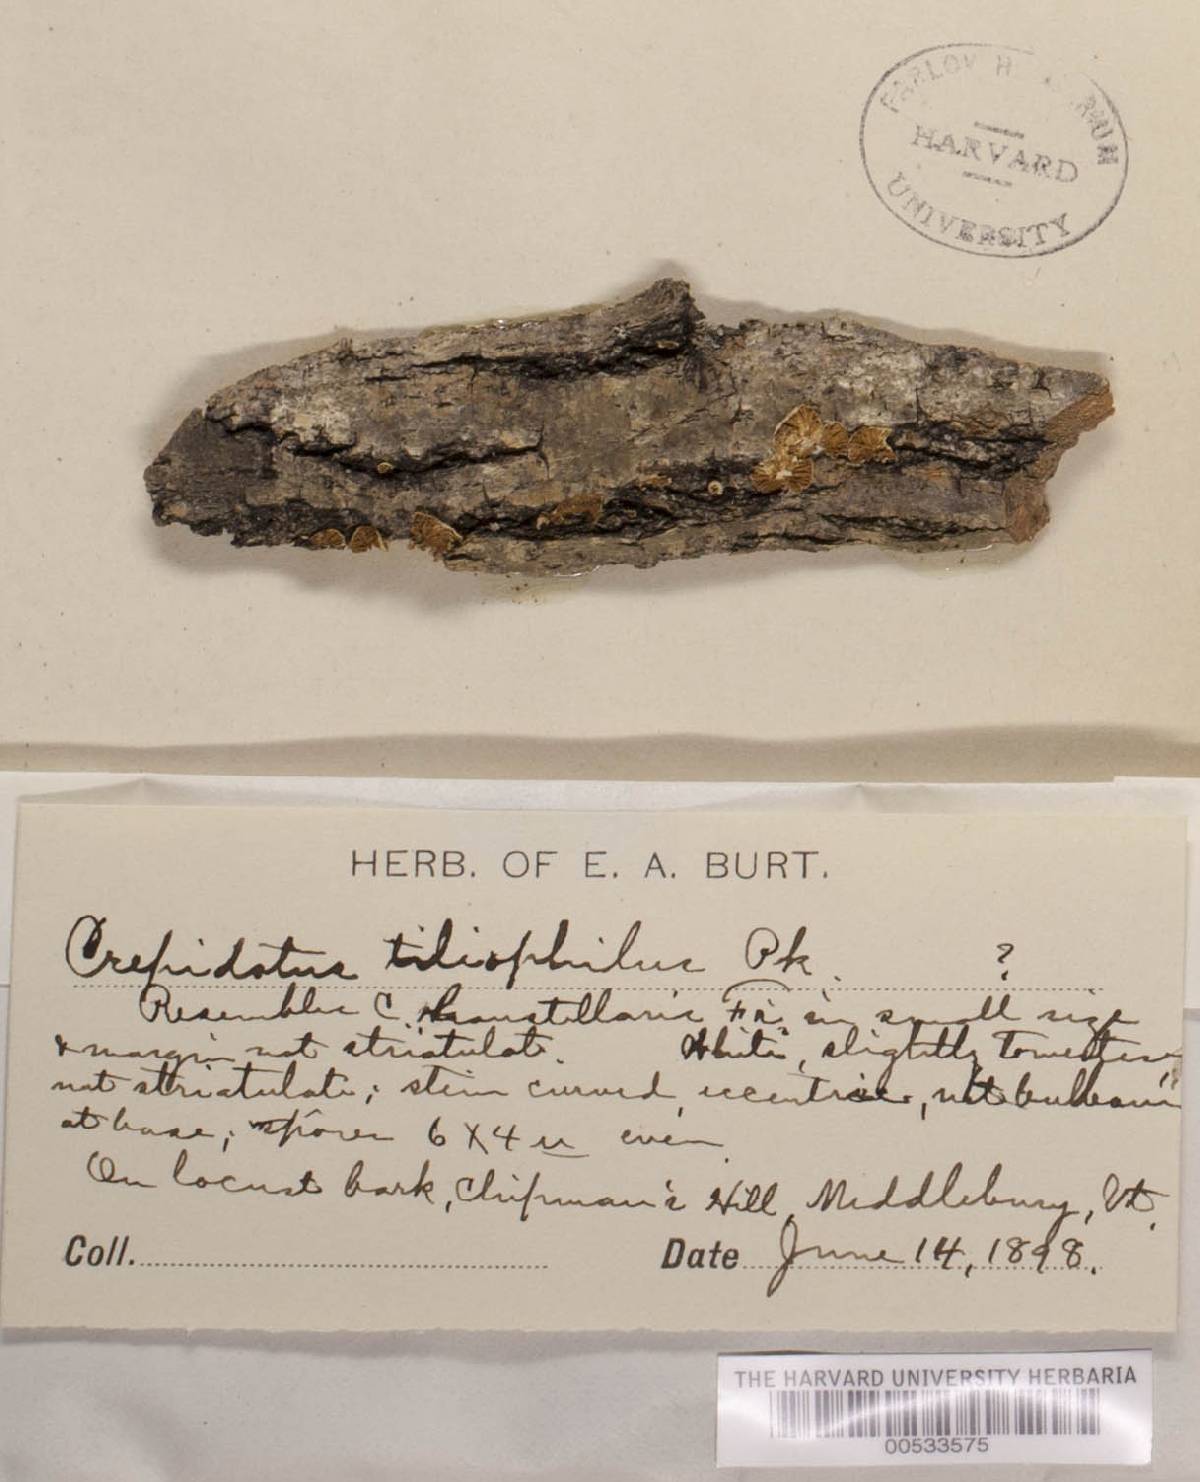 FARLOW H
HARVARD
UNIVERSITY
HERB. OF E. A. BURT.
Crepidotus tiliophilus Pk. ?
Resembles C. haustellaris Fr. in small size
& margin not striatulate. White, slightly tomentose,
not striatulate; stem curved, eccentric, not
at base; spores 6 X 4 u even.
On locust bark, Chipman's Hill, Middlebury, Vt.
Coll. Date June 14, 1898.
THE HARVARD UNIVERSITY HERBARIA
00533575